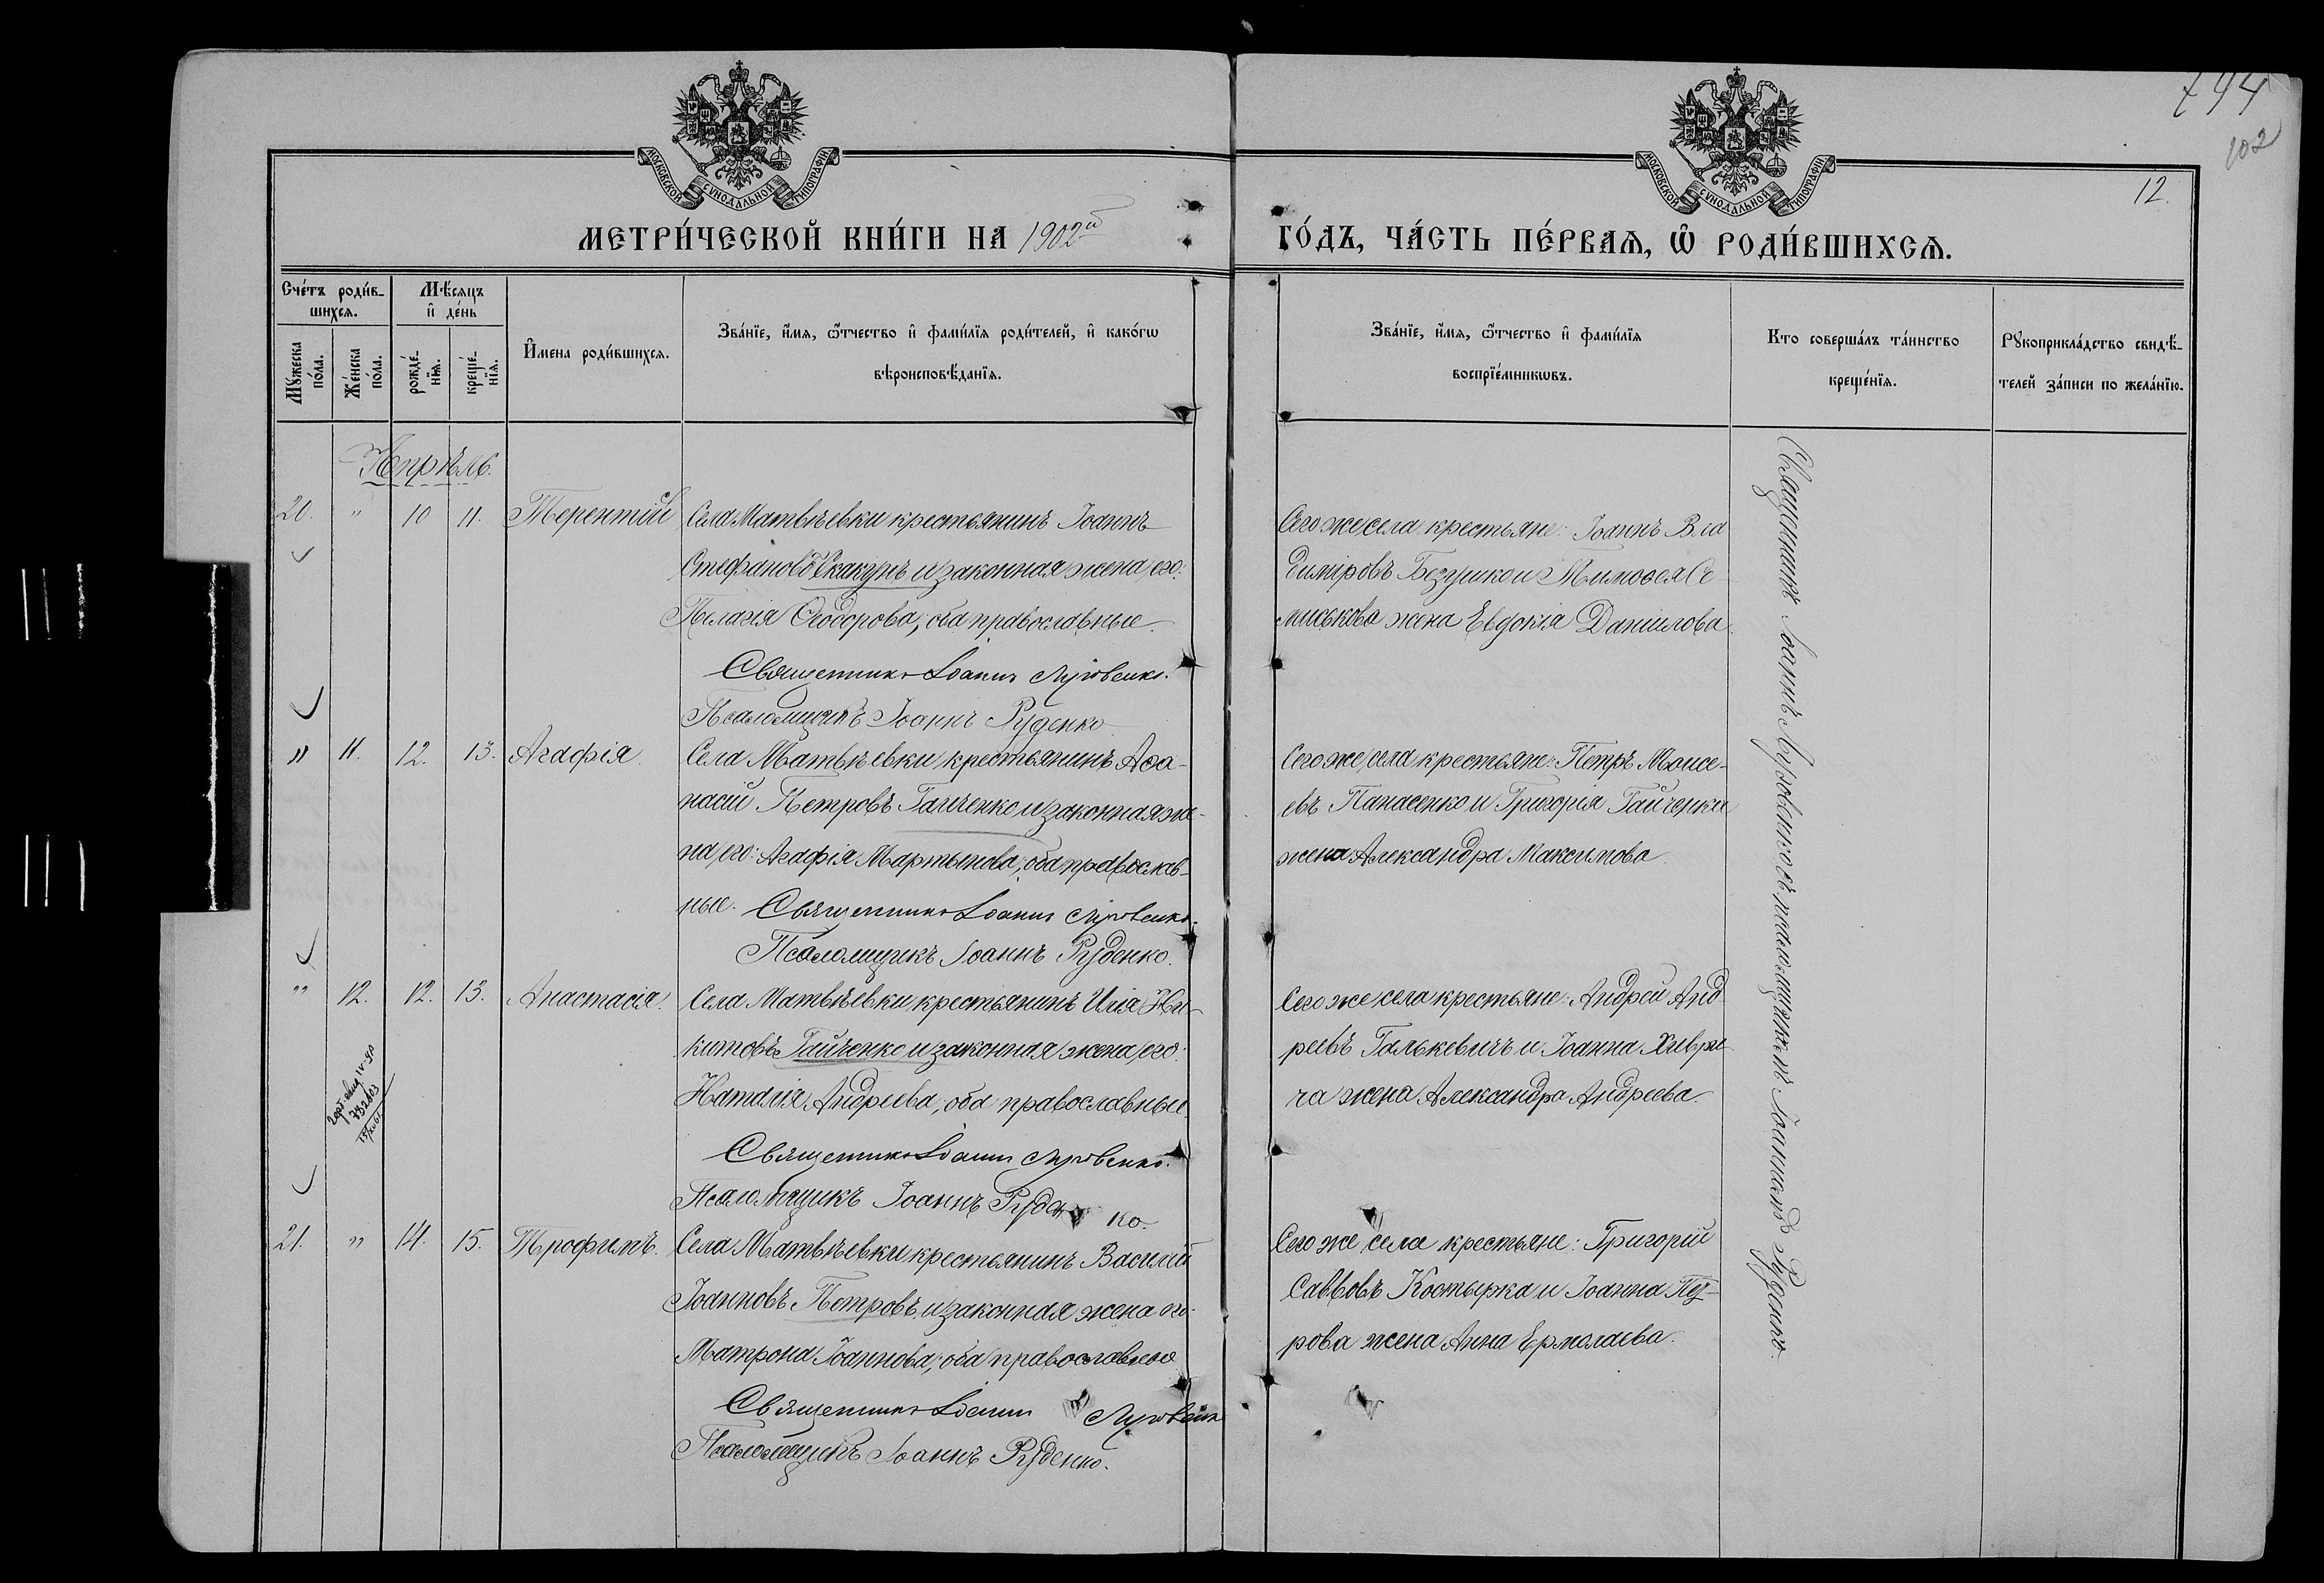 МОСКОВСКОЙ СУНОДАЛЬНОЙ ТИПОГРАФІИ
МОСКОВСКОЙ СУНОДАЛЬНОЙ ТИПОГРАФІИ
794
102
12.
МЕТРИ́ЧЕСКОЙ КНИ́ГИ НА 1902й
ГО́ДЪ, ЧА́СТЬ ПЕ́РВАѦ, Ѡ҆ РОДИ́ВШИХСѦ.
Сче́тъ роди́в-
шихсѧ.
Мꙋ́жеска по́ла.
Же́нска по́ла.
Мѣ́сѧцъ
и҆ де́нь
рожде́-нїѧ.
креще́-нїѧ.
И҆́мена роди́вшихсѧ.
Зва́нїе, и҆́мѧ, ѻ҆́тчество и҆ фами́лїѧ роди́телей, и҆ како́гѡ
вѣроисповѣ́данїѧ.
Зва́нїе, и҆́мѧ, ѻ҆́тчество и҆ фами́лїѧ
воспрїе́мникѡвъ.
Кто соверша́лъ та́инство
креще́нїѧ.
Рꙋкоприкла́дство свидѣ́-
телей за́писи по жела́нїю.
Апрѣль.
20. " 10 11. Терентій
Села Матвѣевки крестьянинъ Іоаннъ
Стефановъ Скакунъ и законная жена его:
Пелагія Ѳеодорова, оба православные.
Священникъ Іоаннъ Луговенко.
Псаломщикъ Іоаннъ Руденко
Сего же села крестьяне: Іоаннъ Вла
диміровъ Безушко и Тимоѳея Се-
миськова жена Евдокія Даніилова.
" 11. 12. 13. Агафія.
Села Матвѣевки крестьянинъ Аѳа-
насій Петровъ Гайченко и законная же-
на его: Агафія Мартынова, оба православ-
ные. Священникъ Іоаннъ Луговенко.
Псаломщикъ Іоаннъ Руденко.
Сего же села крестьяне: Петръ Моисе-
евъ Панасенко и Григорія Гайченки
жена Александра Максимова.
" 12. 12. 13. Анастасія.
Села Матвѣевки крестьянинъ Илія Ни-
китовъ Гайченко и законная жена его:
Наталія Андреева, оба православные.
Священникъ Іоаннъ Луговенко.
Псаломщикъ Іоаннъ Руденко.
Сего же села крестьяне: Андрей Анд
реевъ Галькевичъ и Іоанна Хиври
ча жена Александра Андреева.
21. " 14. 15. Трофимъ.
Села Матвѣевки крестьянинъ Василій
Іоанновъ Петровъ и законная жена его:
Матрона Іоаннова, оба православные
Священникъ Іоаннъ Луговенко
Псаломщикъ Іоаннъ Руденко.
Сего же села крестьяне: Григорій
Саввовъ Костырка и Іоанна
рова жена Анна Ермолаева.
Священникъ Іоаннъ Луговенко съ псаломщикомъ Іоанномъ Руденко.